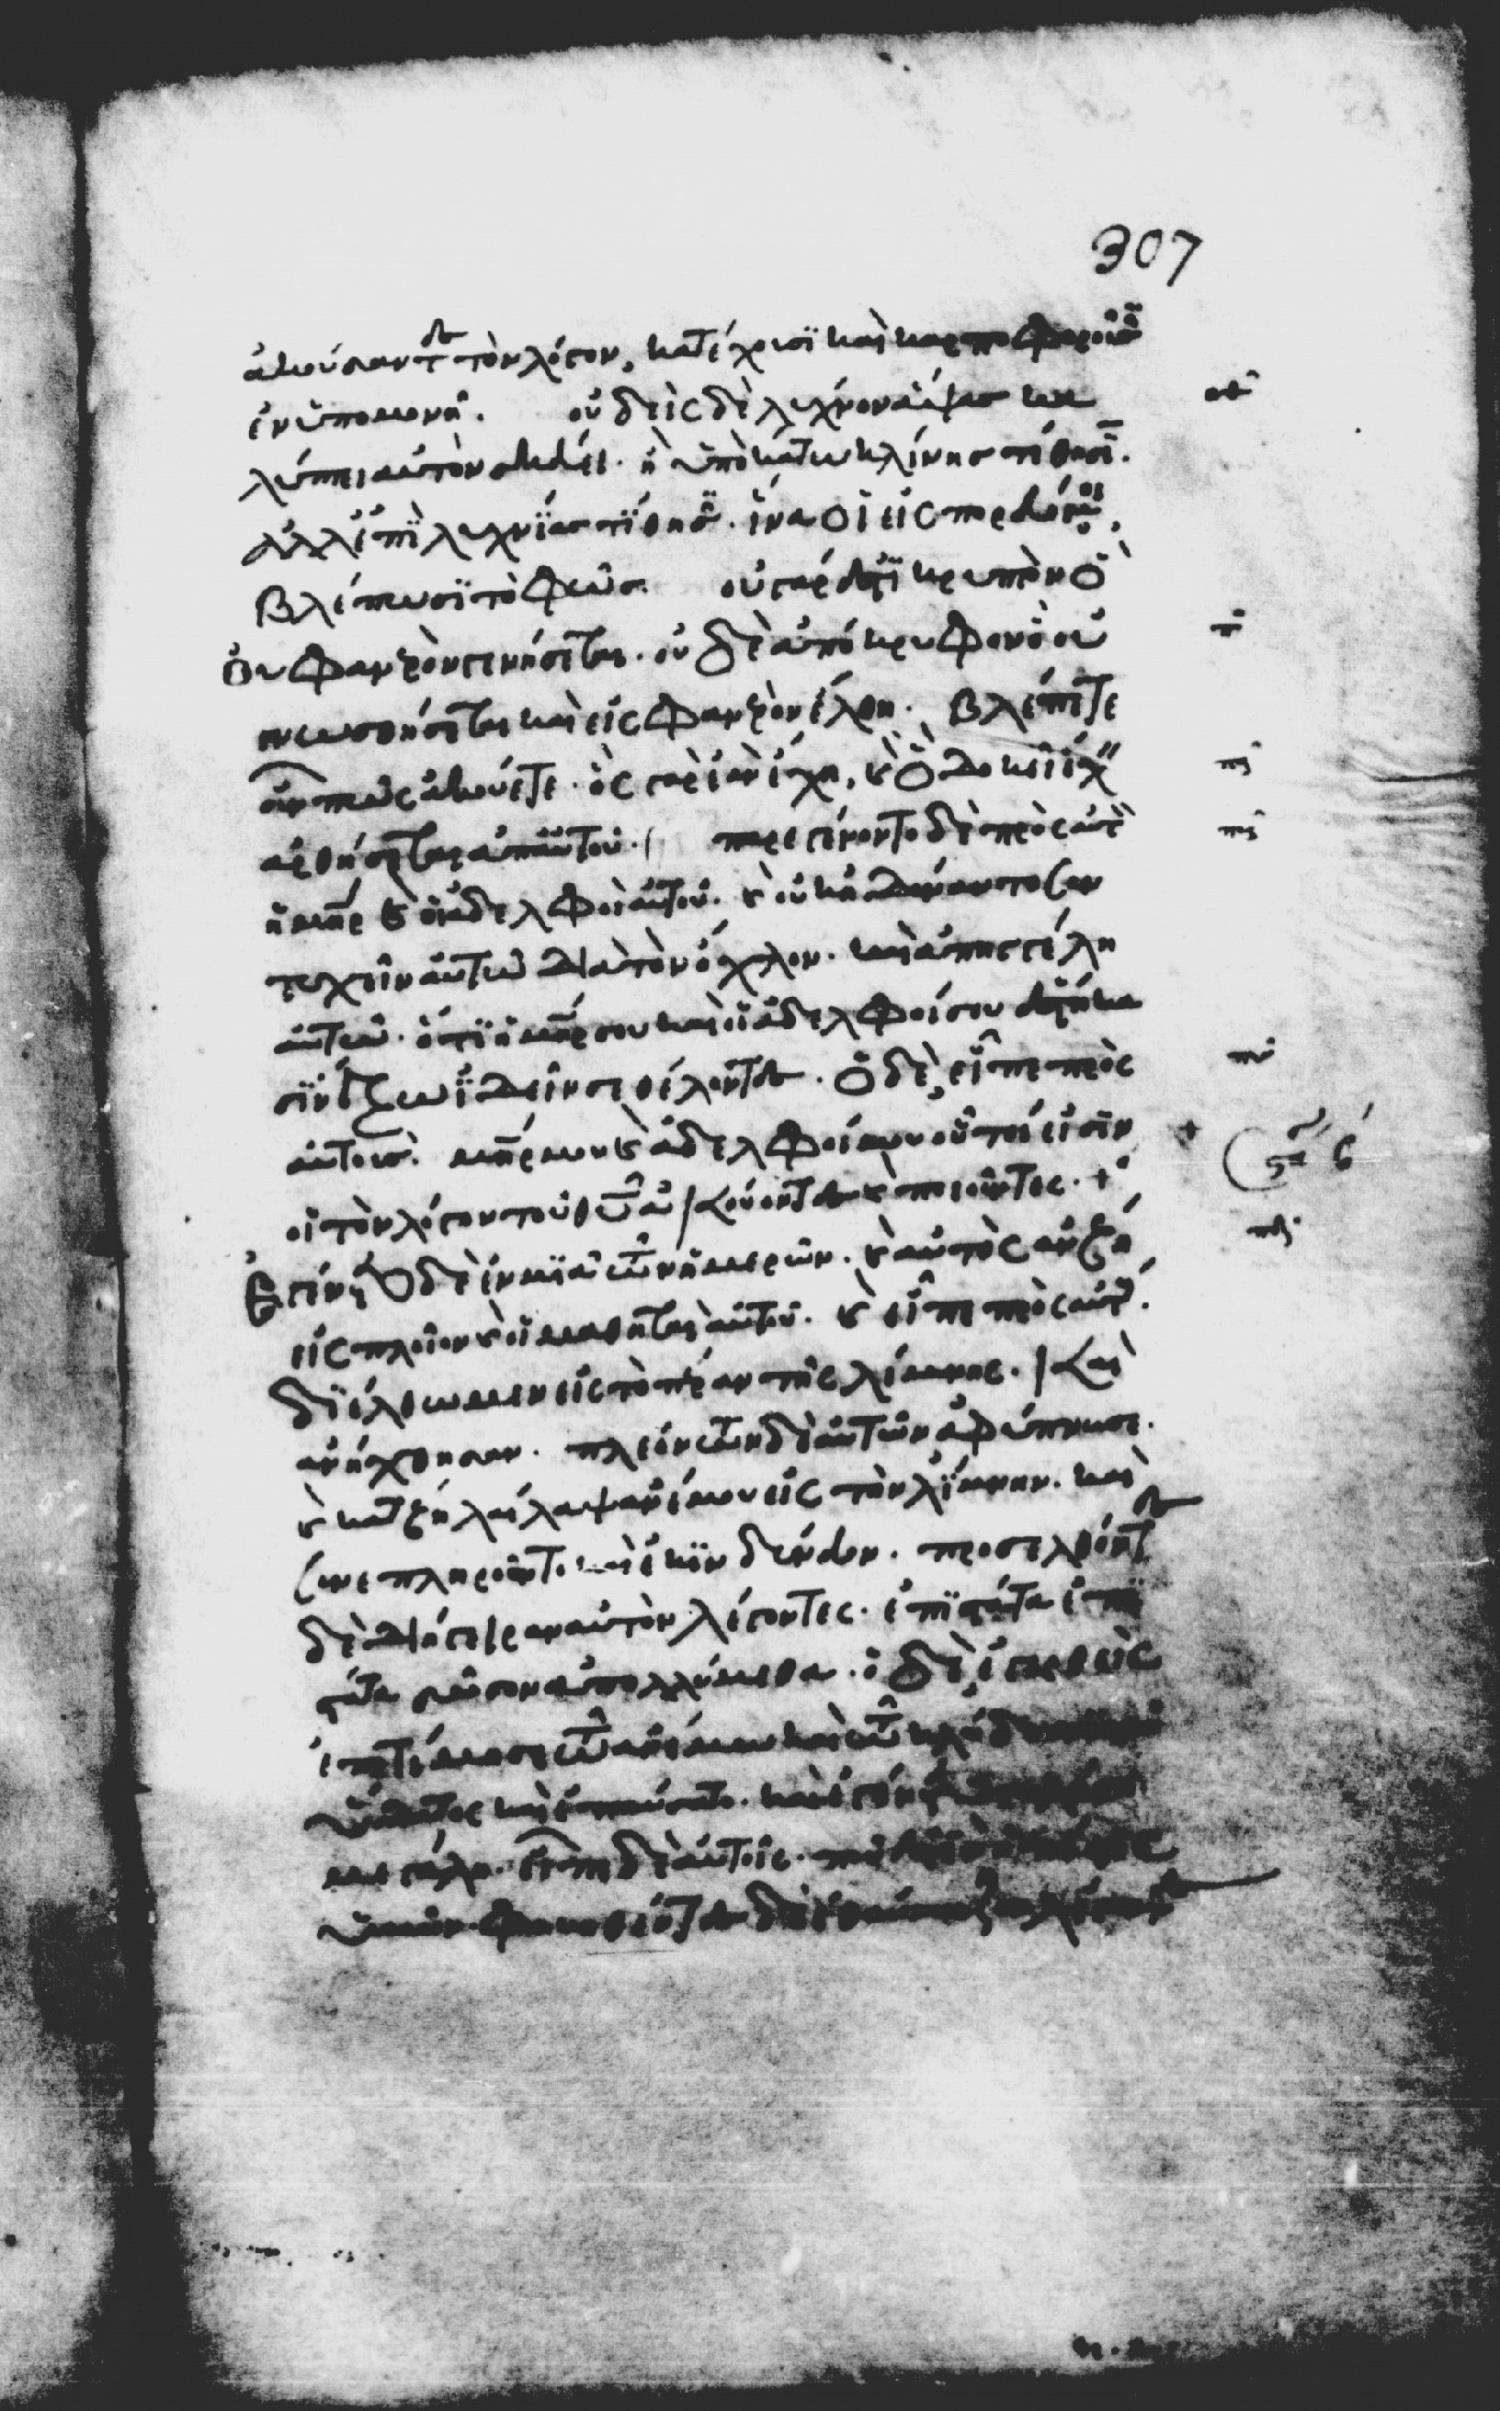 307
ἀκούσαντες τὸν λόγον, κατέχουσϊ καὶ καρποφοροῦσϊν
ἐν ὑπομονῆ. οὐδεὶς δὲ λύχνον ἅψας κα
λύπτει αὐτὸν σκεύει. ἢ ὑποκάτω κλίνης τίθησϊ.
ἀλλ' ἐπὶ λυχνΐας τϊθησϊν. ἵνα οἱ εἰσπορευόμενοι,
βλέπωσϊ τὸ φῶς. οὐ γάρ ἐστϊ κρυπτὸν ὃ
οὐ φανερὸν γενήσεται. οὐδὲ ἀπόκρυφον ὃ οὐ
γνωσθήσεται καὶ εἰς φανερὸν ἔλθη. βλέπετε
οὖν πῶς ἀκούετε. ὃς γὰρ ἐὰν ἔχη, κ ὃ δοκεῖ ἔχειν
ἀρθήσεται ἀπ' αὐτοῦ. παρεγένοντο δὲ πρὸς αὐτὸν
ἡ μηρ κ οἱ ἀδελφοὶ αὐτοῦ. κ οὐκ ἠδύναντο συν
τυχεῖν αὐτῶ διὰ τὸν ὄχλον. καὶ ἀπηγγέλη
αὐτῶ. ὅτϊ ἡ μηρ σου καὶ οἱ ἀδελφοί σου ἑστήκα
σϊν ἔξω ἰδεῖν σε θέλοντες. ὁ δὲ, εἶπε πρὸς
αὐτούς. μηρ μου κ ἀδελφοί μου οὗτοί εἰσϊν
οἱ τὸν λόγον τοῦ θυ ἀκούοντες κ ποιοῦντες. +
Ἐγένετο δὲ ἐν μϊᾶ τῶν ἡμερῶν. κ αὐτὸς ἀνέβη
εἰς πλοῖον κ οἱ μαθηταὶ αὐτοῦ. κ εἶπε πρὸς αὐτούς.
δϊέλθωμεν εἰς τὸ πέραν τῆς λίμνης. καὶ
ἀνήχθησαν. πλεόντων δὲ αὐτῶν ἀφύπνωσε.
κ κατέβη λαίλαψ ἀνέμου εἰς τὴν λίμνην. καὶ
συνεπληροῦντο καὶ ἐκϊνδύνευον. προσελθόντες
δὲ διήγειραν αὐτὸν λέγοντες. ἐπϊστάτα ἐπϊ
στάτα σῶσον ἀπολλύμεθα. ὁ δὲ, ἐγερθεὶς
ἐπετίμησε τῶ ἀνέμω καὶ τῶ κλύδωνι τοῦ
ὕδατος καὶ ἐπαύσατο. καὶ ἐγένετο γαλήνη
μεγάλη. εἶπε δὲ αὐτοῖς. ποῦ ἐστὶν ἡ πίστις
ὑμῶν. φοβηθέντες δὲ ἐθαύμασαν λέγοντες
οθ
π
πα
πβ
πγ
+
πδ